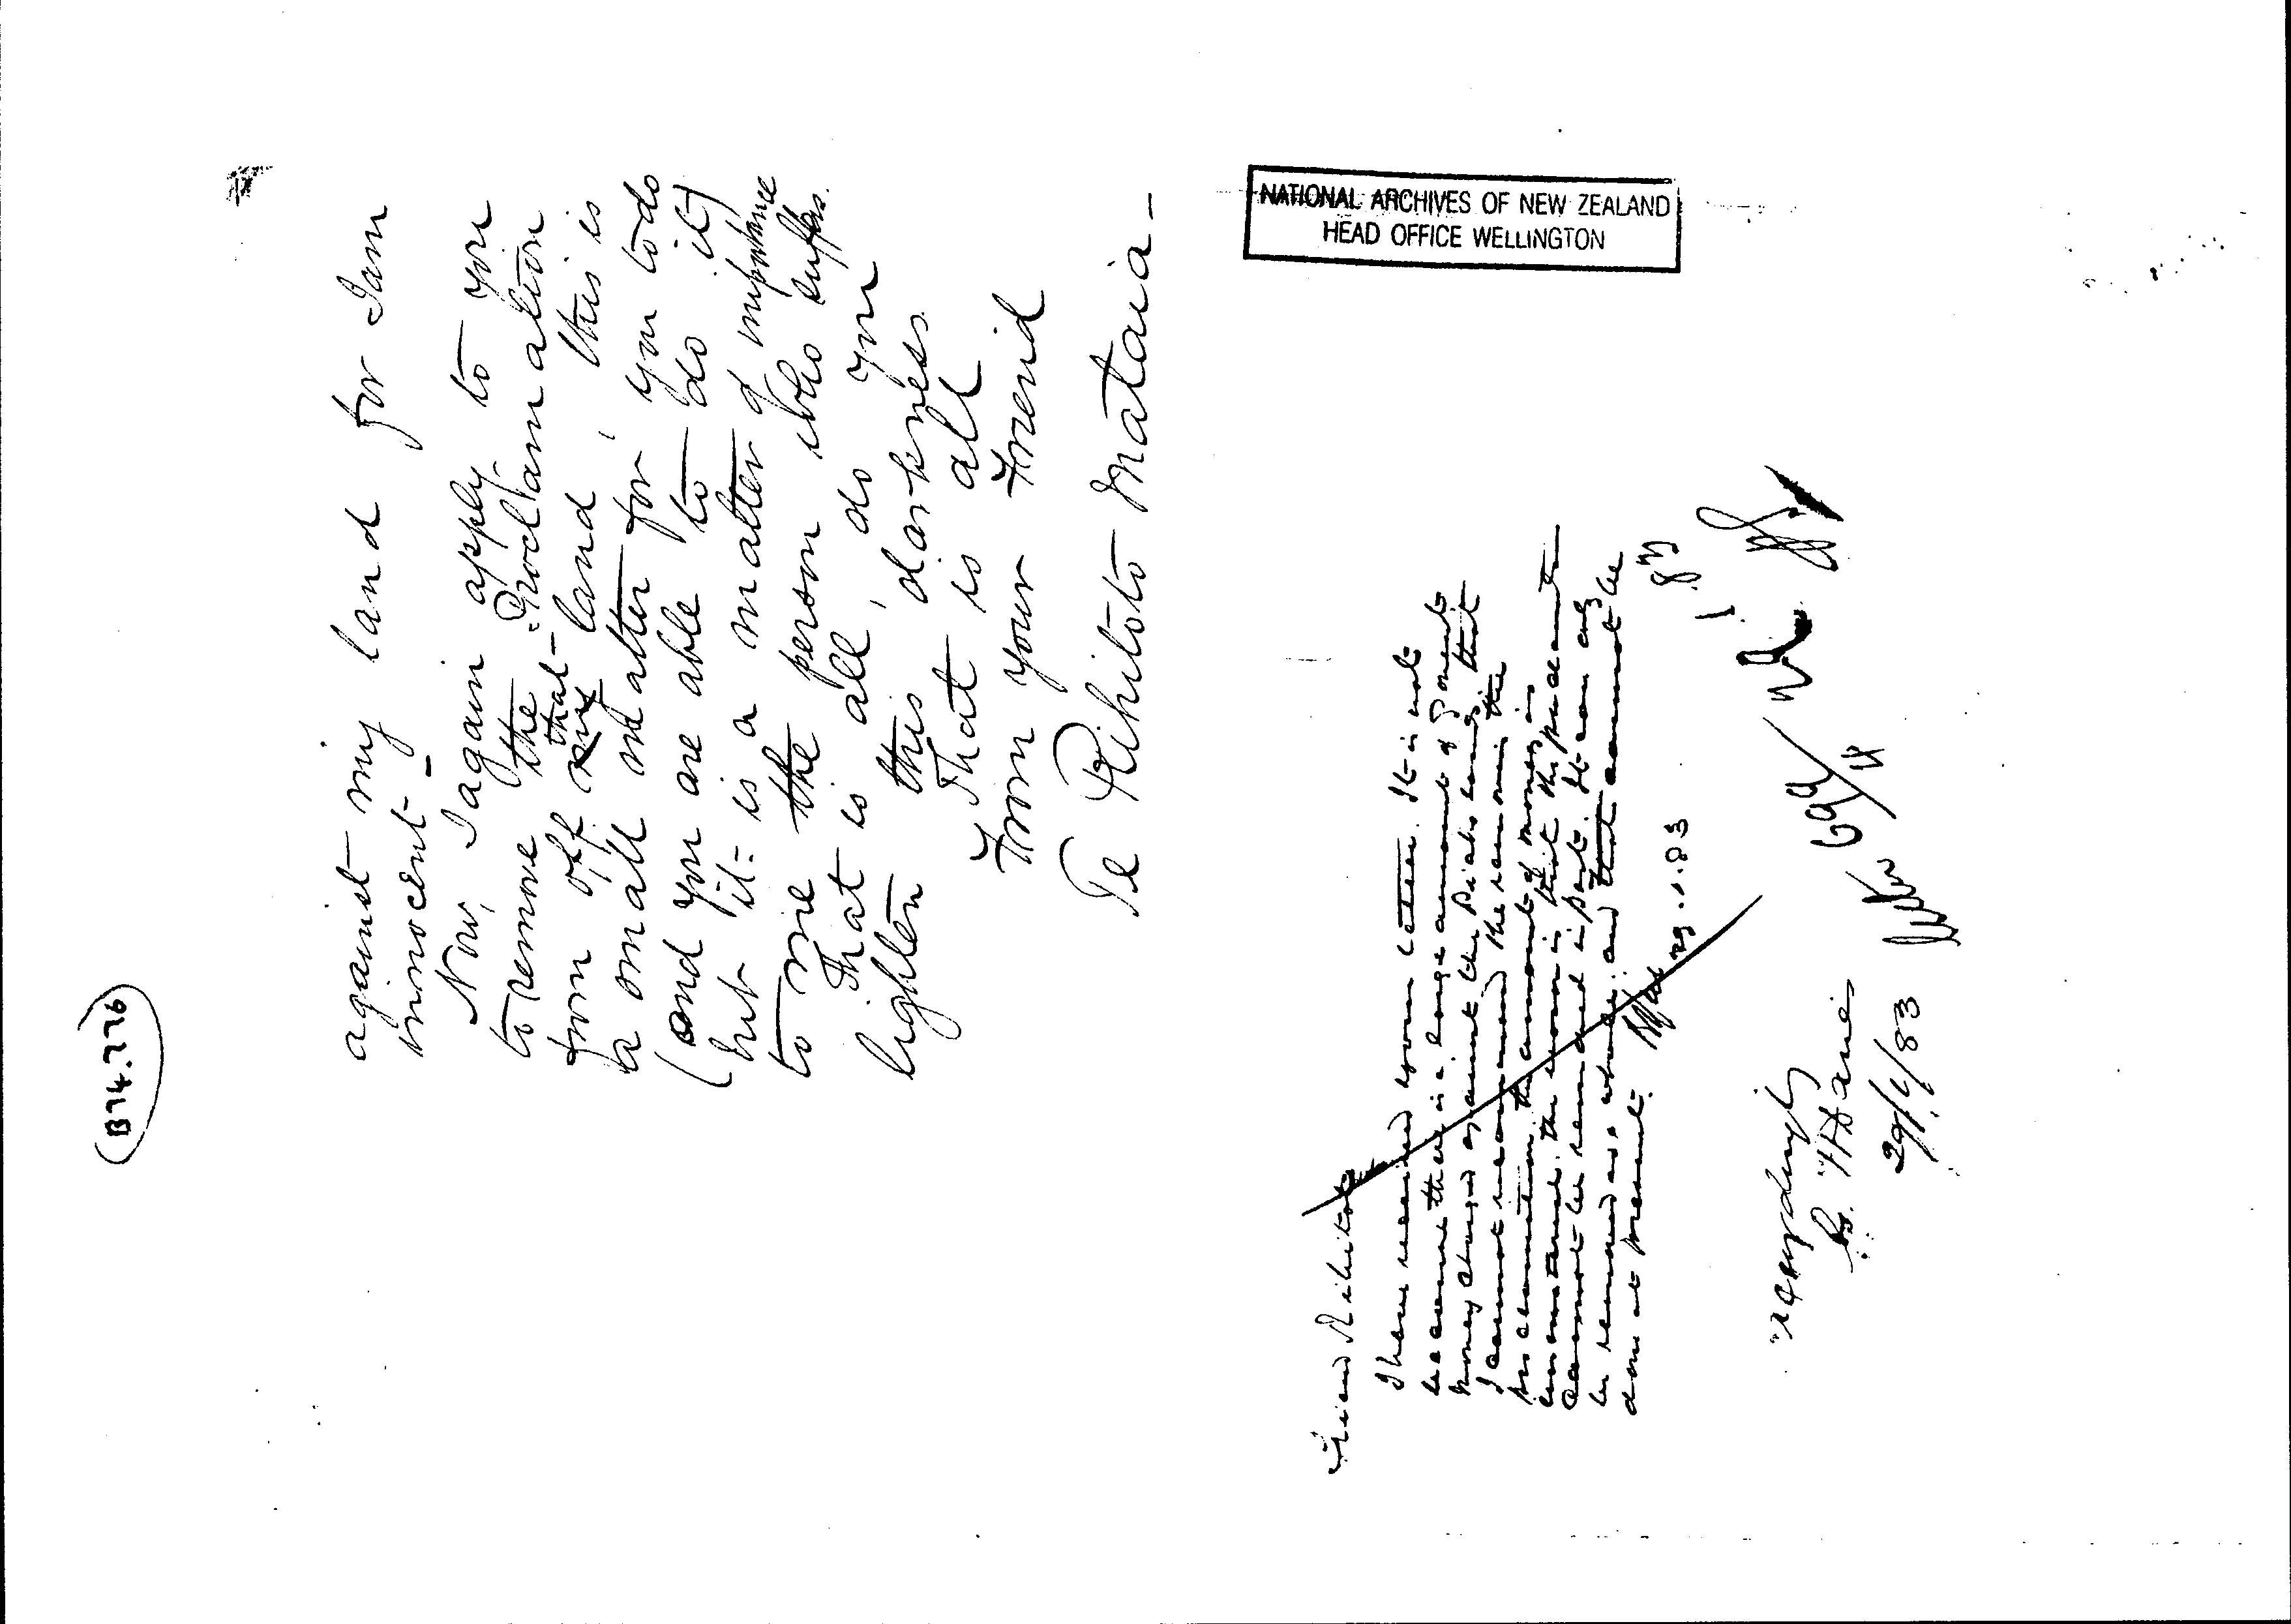 B74.776
against my land for I am
innocent -
Now, I again apply to you
to remove the Proclamation
from off my that land, this is
a small matter for you to do
(and you are able to do it)
but it is a matter of importance
to me the person who suffers.
That is all, do you
lighten this darkness.
That is all
From your Friend
Te Rihitoto Mataia -
NATIONAL ARCHIVES OF NEW ZEALAND
HEAD OFFICE WELLINGTON
Friend Rihitoto
I have received your letter. It is not
because there is a large amount of Govment
money charged against the Piako lands that
I cannot recommend the removing the
proclamation. The amount of money is
the reason is that this proclamation
cannot be removed in part. It can only
be removed as a whole; and that cannot be
done at present.
29.1.83
Accordingly
29/1/83